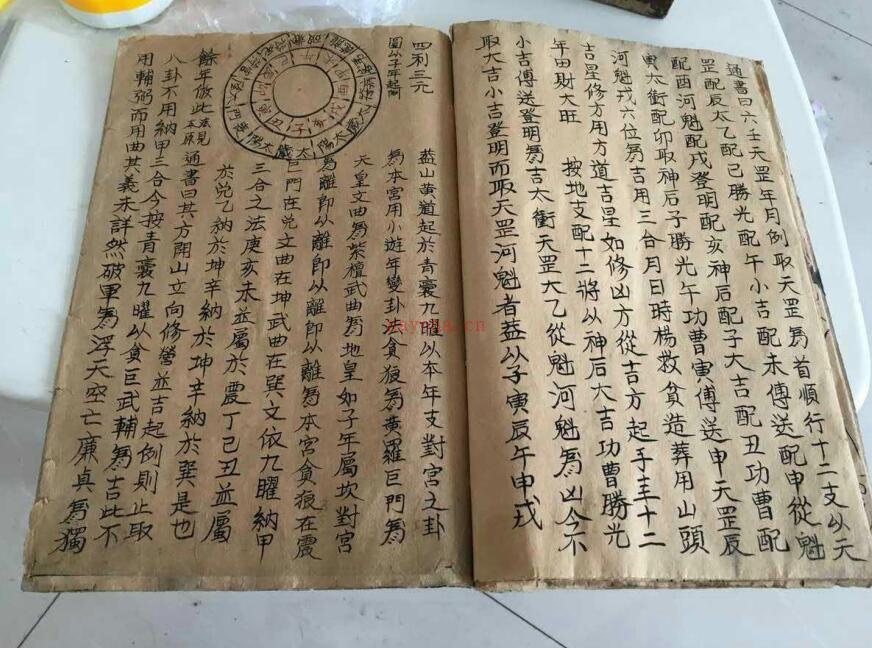 通書曰六壬天罡年月例取天罡為首順行十二支以天
罡配辰太乙配巳勝光配午小吉配未傳送配申從魁
配酉河魁配戌登明配亥神后配子大吉配丑功曹配
寅太衝配卯取神后子勝光午功曹寅傳送申天罡辰
河魁戌六位為吉用三合月日時楊救貧造葬用山頭
吉星修方用方道吉星如修凶方從吉方起手圭十二
年田財大旺 按地支配十二將以神后大吉功曹勝光
小吉傳送登明為吉太衝天罡太乙從魁河魁為凶今不
取大吉小吉登明而取天罡河魁者蓋以子寅辰午申戌
四利三元
圖以子年起例
太歲
太陽
子
丑
亥
蓋山黃道起於青囊九曜以本年支對宮之卦
為本宮用小遊年變卦貪狼為黃羅巨門為
天皇文曲為紫檀武曲為地皇如子年屬坎對宮
為離即以離即以離為本宮貪狼在震
巨門在兌文曲在坤武曲在巽文依九曜納甲
三合之法庚亥未並屬於震丁巳丑並屬
於兌乙納於坤辛納於坤辛納於巽是也
餘年倣此法見本原通書曰其方開山立向修營並吉起例則止取
八卦不用納甲三合今按青囊九曜以貪巨武輔為吉此不
用輔弼而用曲其義未詳然破軍為浮天空亡廉貞為獨